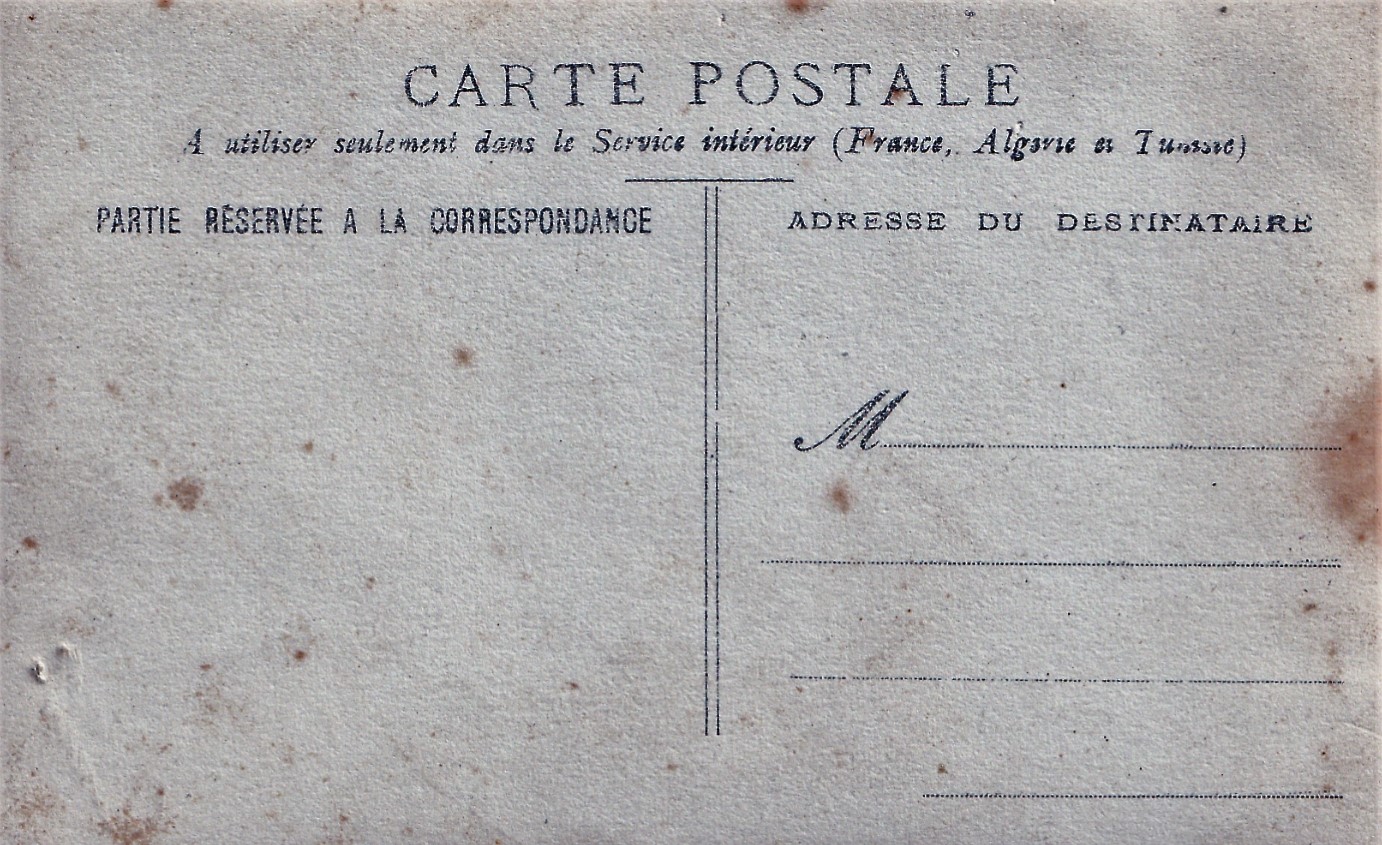 CARTE POSTALE
A utiliser seulement dans le Service intérieur (France, Algérie et Tunisie)
PARTIE RÉSERVÉE A LA CORRESPONDANCE
ADRESSE DU DESTINATAIRE
M